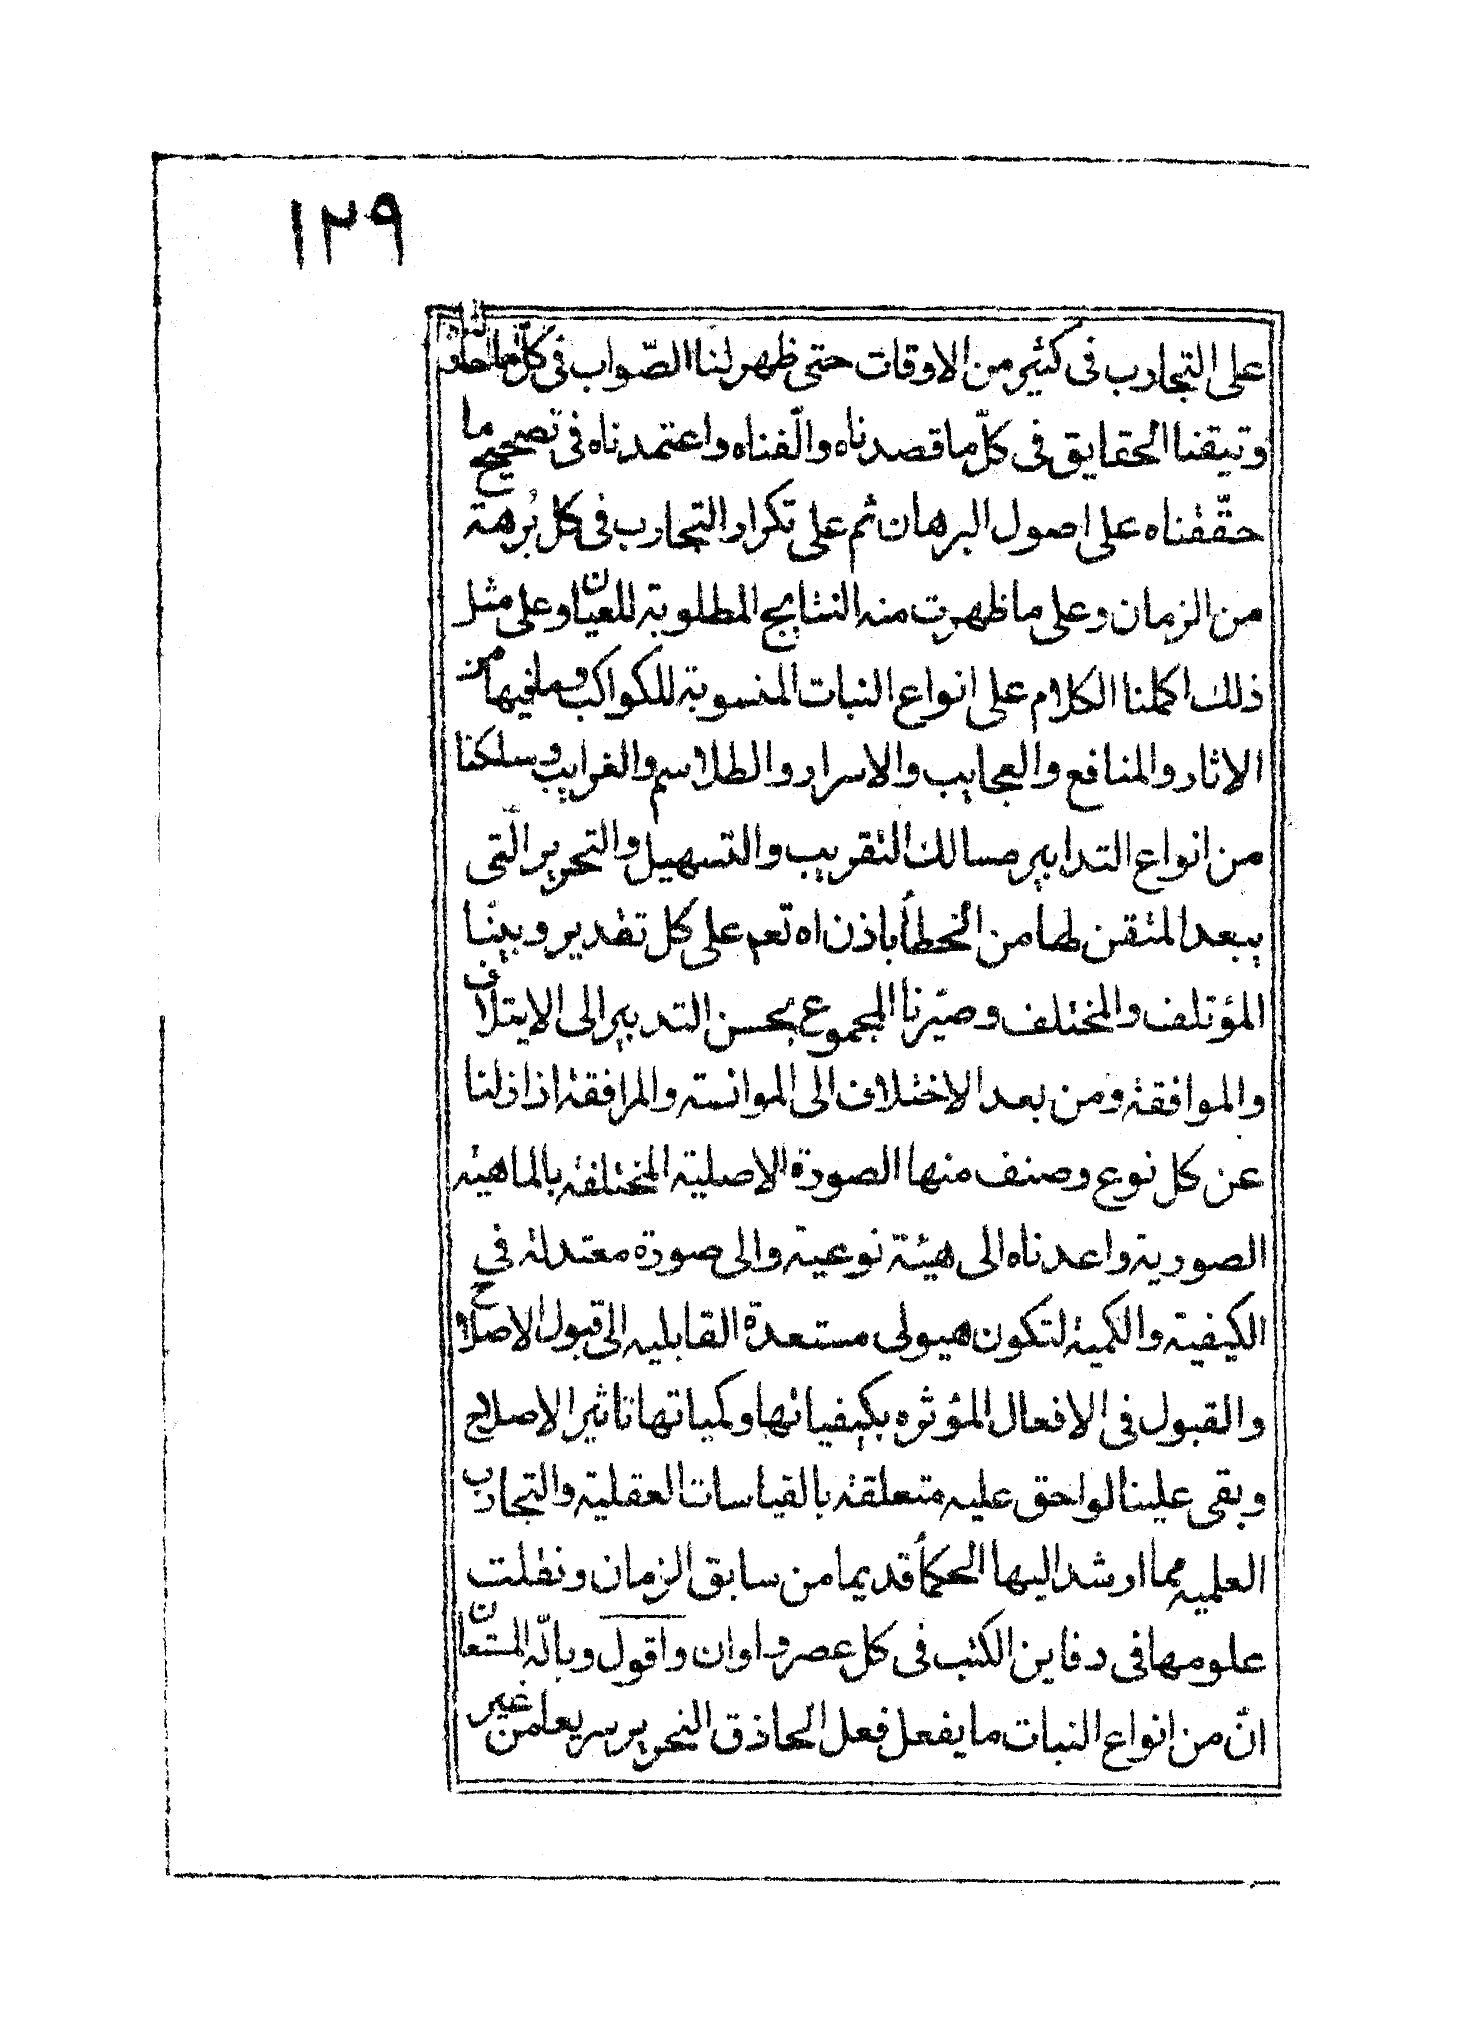 ١٢٩
على التجارب فى كثير من الاوقات حتى ظهر لنا الصّواب فى كلّ ما
وتيقنا الحقايق فى كلّ ما قصدناه والّفناه واعتمدناه فى تصحيح ما
حقّقناه على اصول البرهان ثم على تكرار التجارب فى كل بُرهة
من الزمان وعلى ما ظهرت منه النتايج المطلوبة للعيان وعلى مثل
ذلك اكملنا الكلام على انواع النبات المنسوبة للكواكب وما فيها من
الاثار والمنافع والعجايب والاسرار والطلاسم والغرايب وسلكنا
من انواع التدابير مسالك التقريب والتسهيل والتحرير الّتى
يبعد المتقن لها من الخطأ باذن اه تعم على كل تقدير وبينّا
المؤتلف والمختلف وصيّرنا المجموع بحسن التدبير الى الايتلاف
والموافقة ومن بعد الاختلاف الى الموانسة والمرافقة اذ ازلنا
عن كل نوع وصنف منها الصورة الاصلية المختلفة بالماهية
الصورية واعدناه الى هيئة نوعية والى صورة معتدلة في
الكيفية والكمية لتكون هيولى مستعدة القابليه الى قبول الاصلاح
والقبول فى الافعال المؤثره بكيفياتها وكمياتها تاثير الاصلاح
وبقى علينا لواحق عليه متعلقة بالقياسات العقلية والتجارب
العلميه مما ارشد اليها الحكمأ قديما من سابق الزمان ونقلت
علومها فى دفاين الكتب فى كل عصر واوان واقول وباللّه المستعان
انّ من انواع النبات ما يفعل فعل الحاذق النحرير سريعا من غير